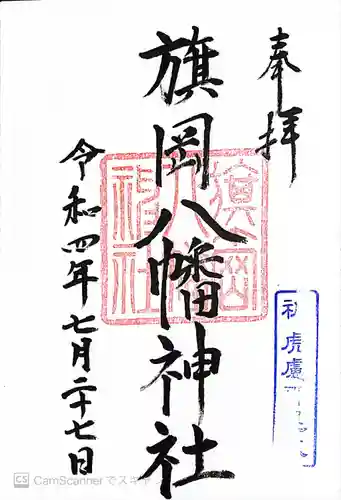 奉拝
旗岡八幡神社
令和四年七月二十七日
CS CamScannerでスキャン